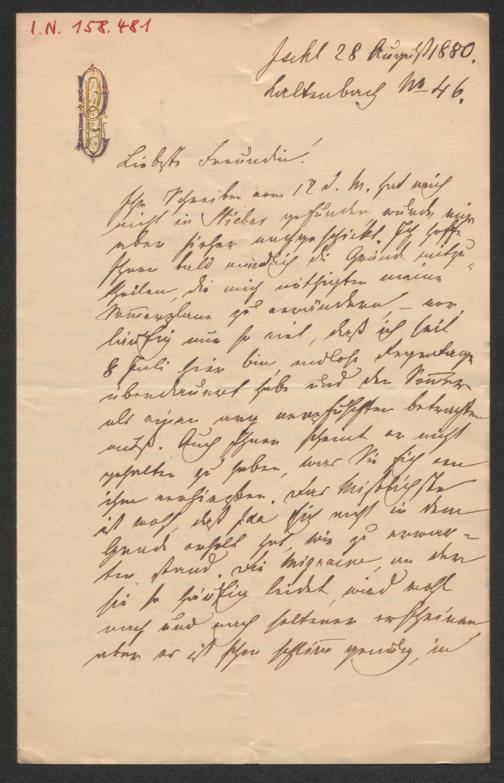 I.N. 158.481
Ischl 28 August 1880.
Kaltenbach No 46.
Liebste Freundin!
Ihr Schreiben vom 12 d. M. hat mich
nicht in gefunden wurde mir
aber hieher nachgeschickt. Ich hoffe
Ihnen bald mündlich die Gründe mitzu-
theilen, die mich nöthigten meine
Sommerpläne zu verändern, – vor-
läufig nur so viel, daß ich seit
8 Juli hier bin, endlose Regentage
überdauert habe und den Sommer
als einen arg verpfuschten betrachten
muß. Auch Ihnen scheint er nicht
gehalten zu haben, was Sie sich von
ihm verhießen. Das Mißlichste
ist wohl, daß Ida sich nicht in dem
Grade erholt hat, wie zu erwar-
ten stand. Die Migraine, an der
sie so häufig leidet, wird wohl
nach und nach seltener erscheinen
aber es ist schon schlimm genug, in